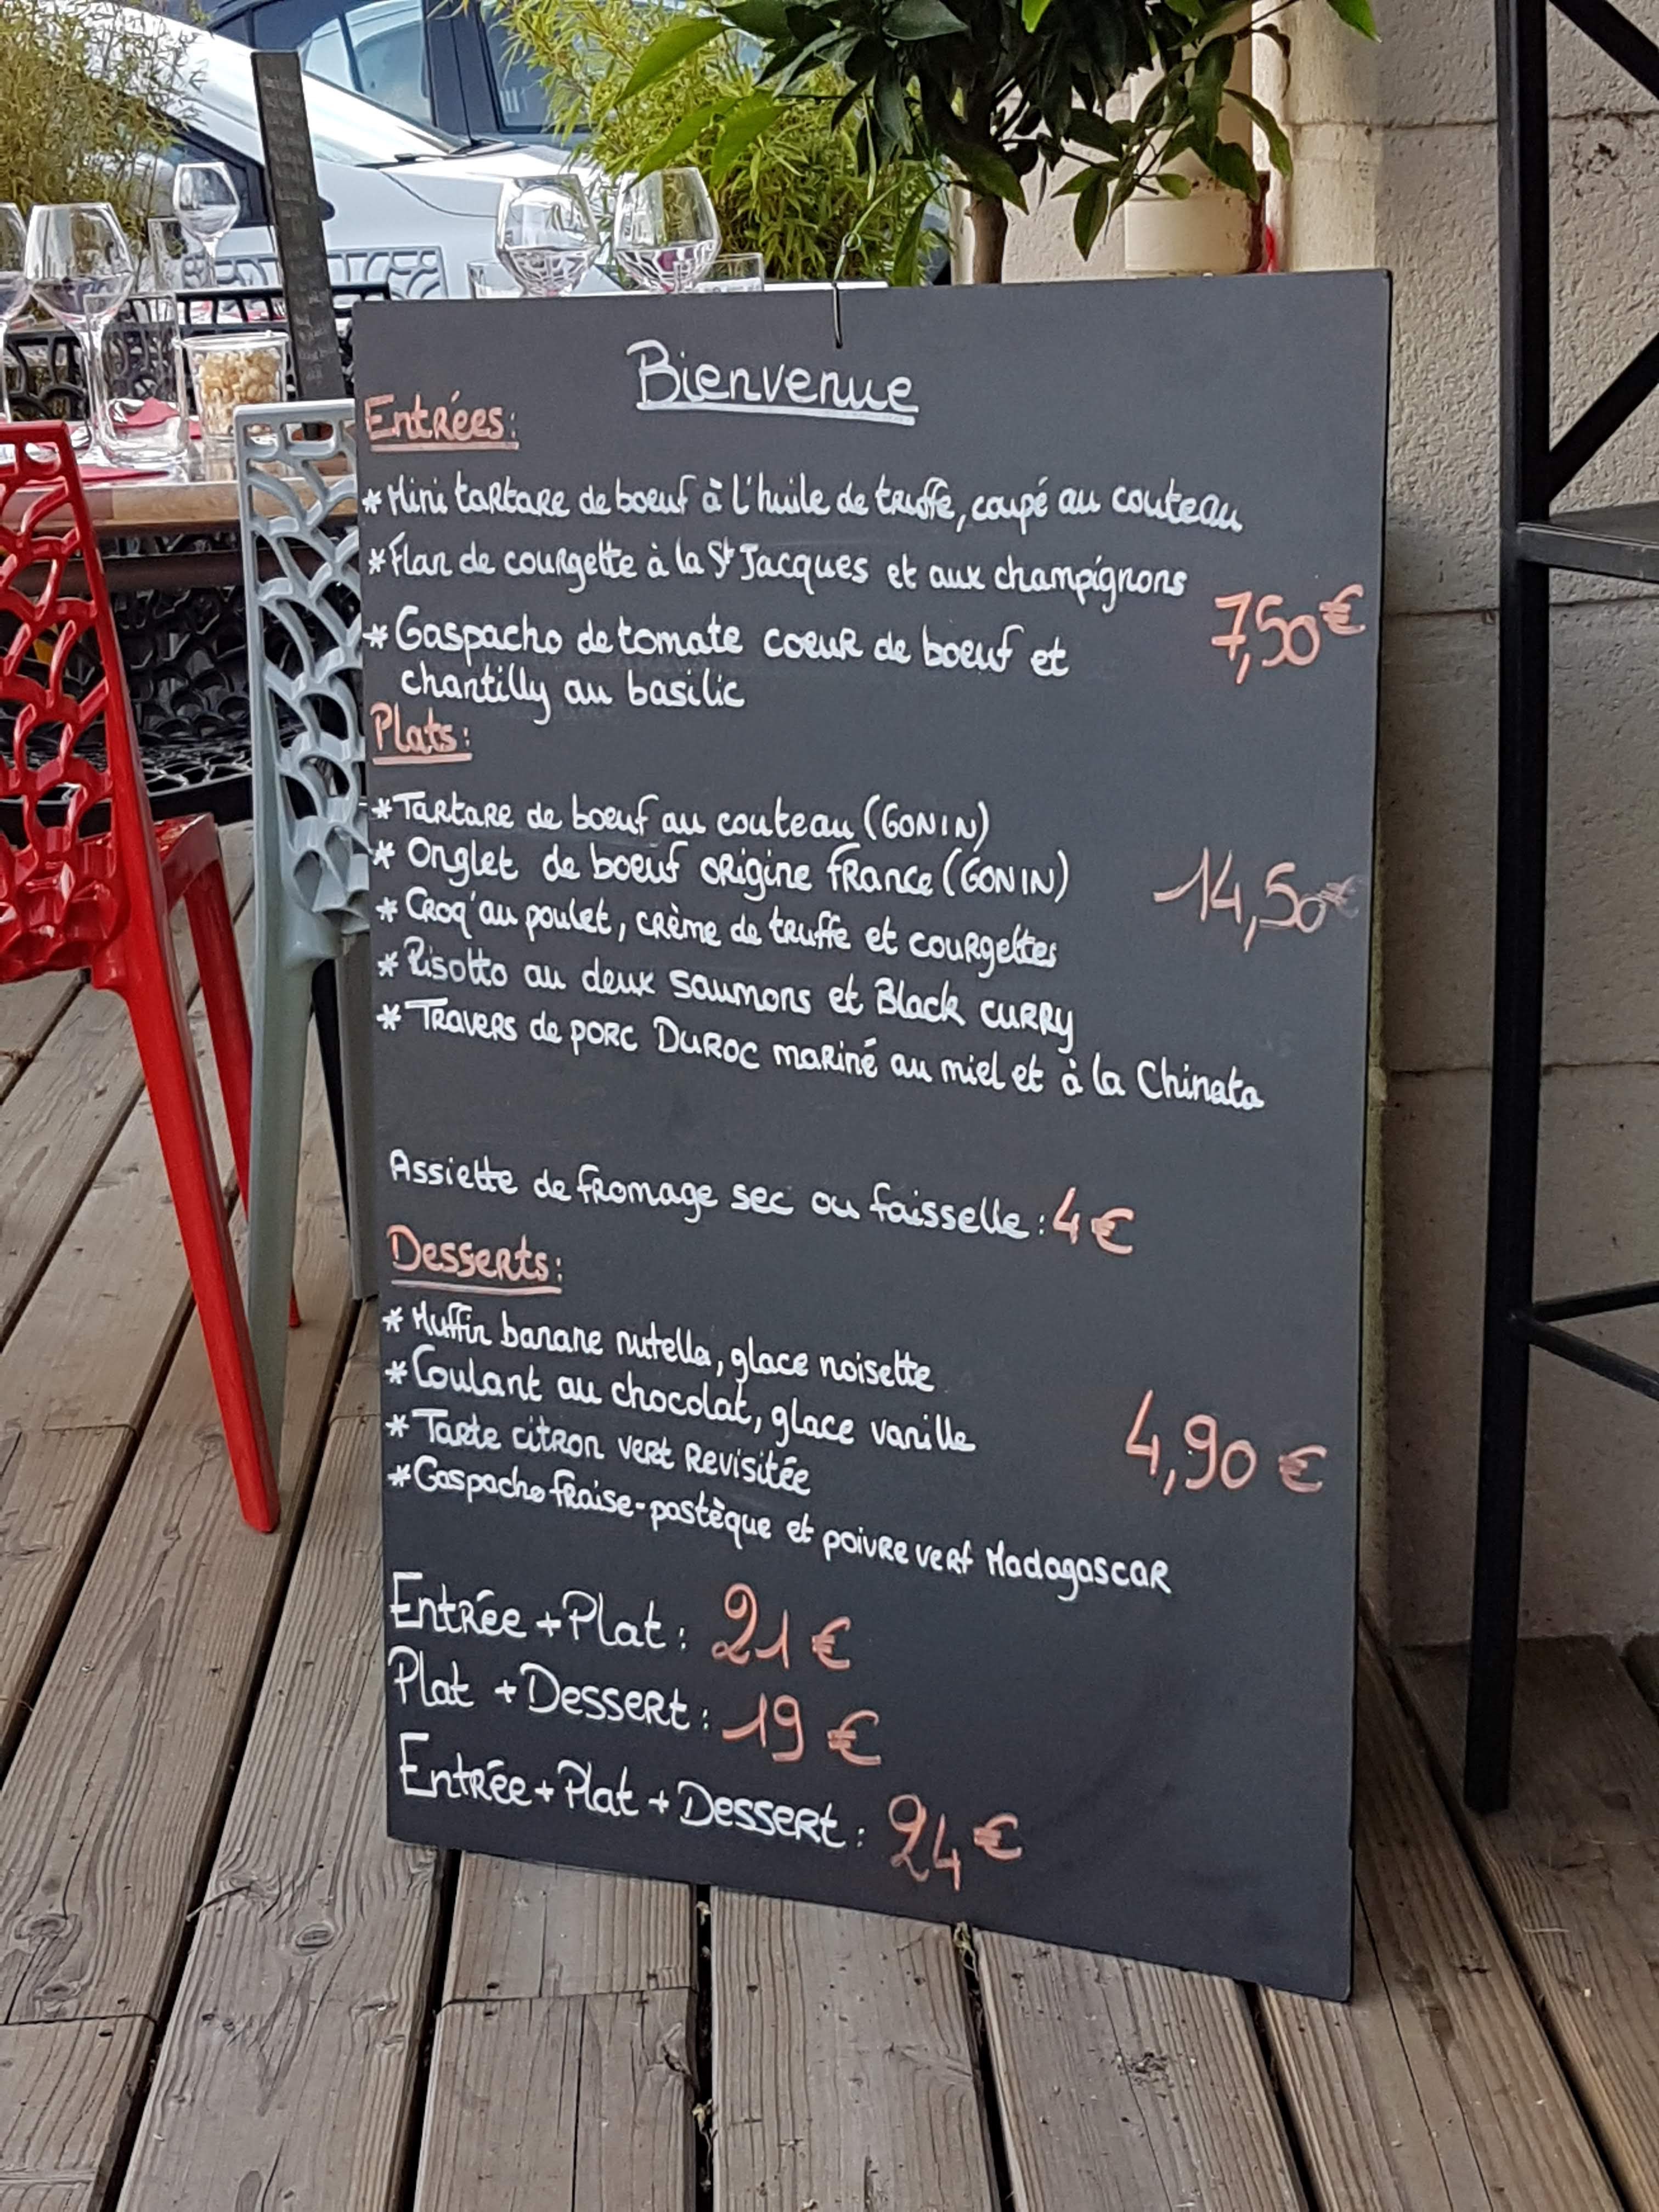 Bienvenue
Entrées:
* Mini tartare de boeuf à l'huile de truffe, coupé au couteau
* Flan de courgette à la St Jacques et aux champignons
7,50€
* Gaspacho de tomate coeur de boeuf et
chantilly au basilic
Plats:
* Tartare de boeuf au couteau (GONIN)
* Onglet de boeuf origine france (GONIN)
14,50€
* Croq'au poulet, crème de truffe et courgettes
* Risotto au deux saumons et Black curry
* Travers de porc Duroc mariné au miel et à la Chinata
Assiette de fromage sec ou faisselle : 4 €
Desserts:
* Muffin banane nutella, glace noisette
* Coulant au chocolat, glace vanille
4,90 €
* Tarte citron vert revisitée
* Gaspacho fraise-pastèque et poivre vert Madagascar
Entrée + Plat : 21 €
Plat + Dessert : 19 €
Entrée + Plat + Dessert : 24 €